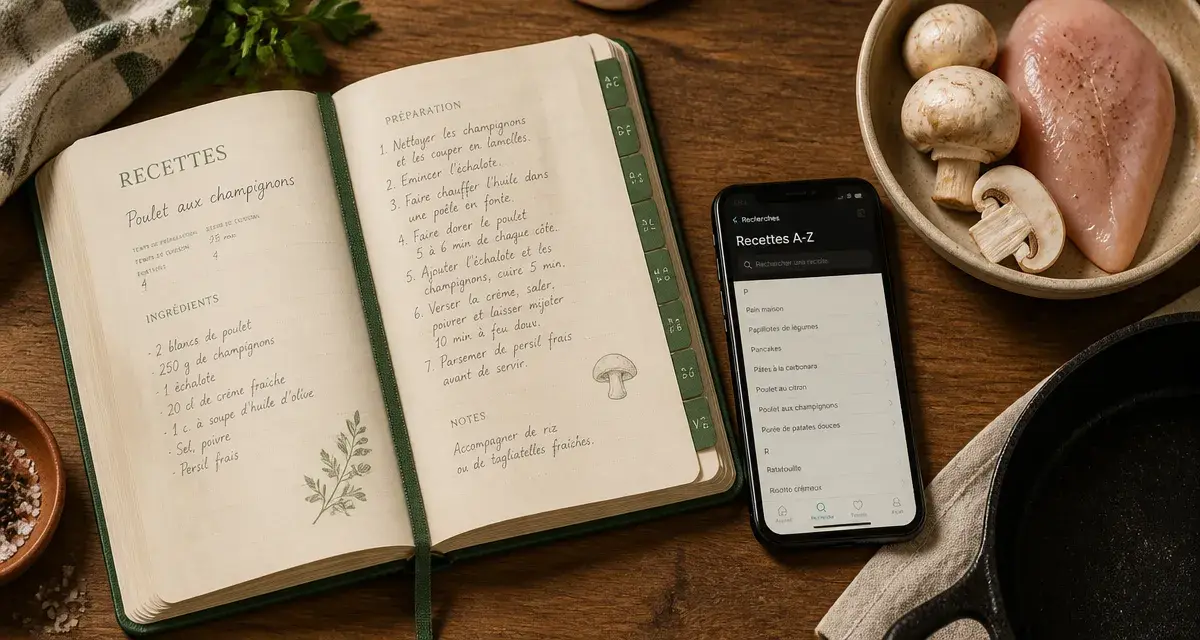 RECETTES
Poulet aux champignons
TEMPS DE PRÉPARATION
25 min
4
PORTIONS
4
INGRÉDIENTS
- 2 blancs de poulet
- 250 g de champignons
- 1 échalote
- 20 cl de crème fraîche
- 1 c. à soupe d'huile d'olive
- Sel, poivre
- Persil frais
PRÉPARATION
1. Nettoyer les champignons
et les couper en lamelles.
2. Emincer l'échalote.
3. Faire chauffer l'huile dans
une poêle en fonte.
4. Faire dorer le poulet
5 à 6 min de chaque côte.
5. Ajouter l'échalote et les
champignons, cuire 5 min.
6. Verser la crème, saler,
poivrer et laisser mijoter
10 min à feu doux.
7. Parsemer de persil frais
avant de servir.
NOTES
Accompagner de riz
ou de tagliatelles fraîches.
Recherches
Recettes A-Z
Rechercher une recette
P
Pain maison
Papillotes de légumes
Pancakes
Pâtes à la carbonara
Poulet au citron
Poulet aux champignons
Purée de patates douces
R
Ratatouille
Risotto crémeux
Accueil
Recherche